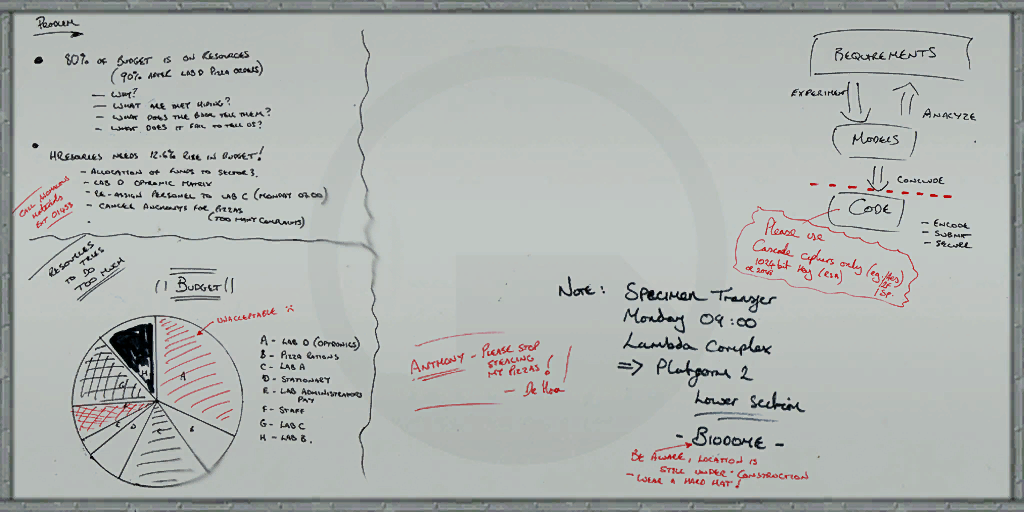 PROBLEM
• 80% OF BUDGET IS ON RESOURCES
(90% AFTER LAB D PIZZA ORDERS)
— WHY?
— WHAT ARE THEY HIDING?
— WHAT DOES THE BOOK TELL THEM?
— WHAT DOES IT FAIL TO TELL US?
• HRESOURCES NEEDS 12.6% RISE IN BUDGET!
- ALLOCATION OF FUNDS TO SECTOR 3.
- LAB D OPTRONIC MATRIX
- RE-ASSIGN PERSONEL TO LAB C (MONDAY 07:00)
- CANCEL ANCHOVYS FOR PIZZAS
(TOO MANY COMPLAINTS)
CALL ANOMALOUS
MATERIALS
EXT 01433
RESOURCES
TRIES
TO DO
TOO MUCH
BUDGET
UNACCEPTABLE
A
B
C
D
E
F
G
H
A - LAB D (OPTRONICS)
B - PIZZA RATIONS
C - LAB A
D - STATIONARY
E - LAB ADMINISTRATORS
PAY
F - STAFF
G - LAB C
H - LAB B.
ANTHONY - PLEASE STOP
STEALING
MY PIZZAS!
REQUIREMENTS
EXPERIMENT
ANALYZE
MODELS
CONCLUDE
CODE
- ENCODE
- SUBMIT
- SECURE
Please use
Cascade Ciphers only
1024 bit key (RSA)
or 2048
NOTE: SPECIMEN Transfer
Monday 09:00
Lambda Complex
=> Platform 2
Lower Section
- BIODOME -
BE AWARE, LOCATION IS
STILL UNDER-CONSTRUCTION
- WEAR A HARD HAT!